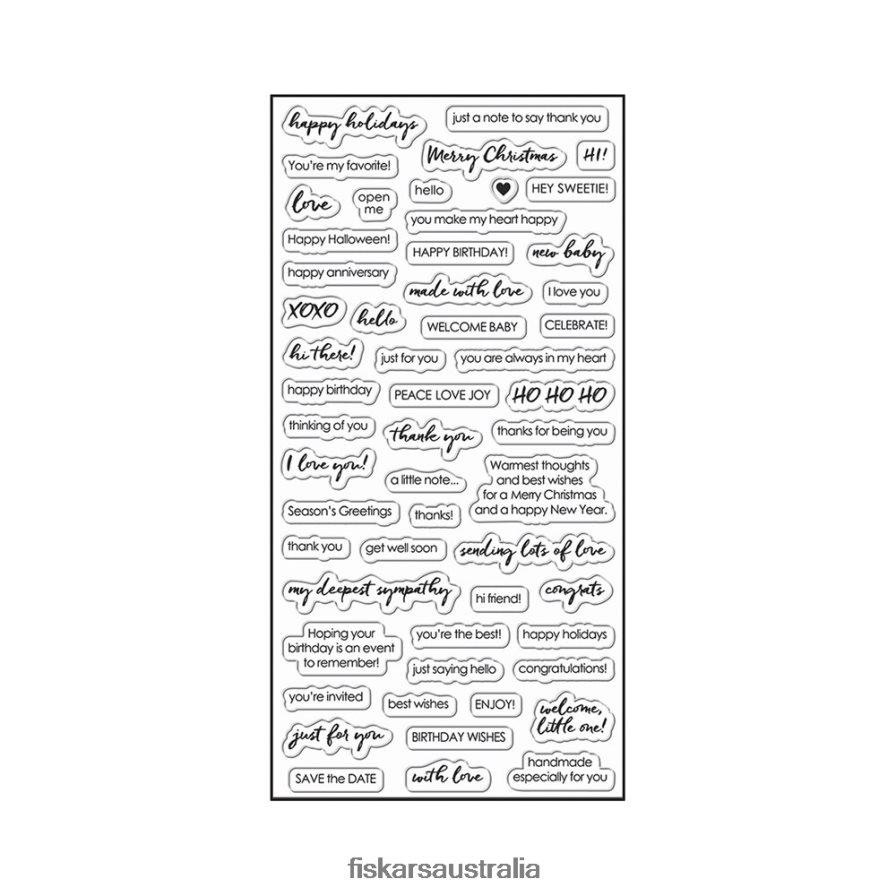 happy holidays
just a note to say thank you
Merry Christmas
HI!
You're my favorite!
hello
HEY SWEETIE!
love
open
me
you make my heart happy
Happy Halloween!
HAPPY BIRTHDAY!
new baby
happy anniversary
made with love
I love you
XOXO
hello
WELCOME BABY
CELEBRATE!
hi there!
just for you
you are always in my heart
happy birthday
PEACE LOVE JOY
HO HO HO
thinking of you
thank you
thanks for being you
I love you!
a little note...
Warmest thoughts
and best wishes
for a Merry Christmas
and a happy New Year.
Season's Greetings
thanks!
thank you
get well soon
sending lots of love
my deepest sympathy
hi friend!
congrats
Hoping your
birthday is an event
to remember!
you're the best!
happy holidays
just saying hello
congratulations!
you're invited
best wishes
ENJOY!
welcome,
little one!
just for you
BIRTHDAY WISHES
handmade
especially for you
SAVE the DATE
with love
fiskarsaustralia